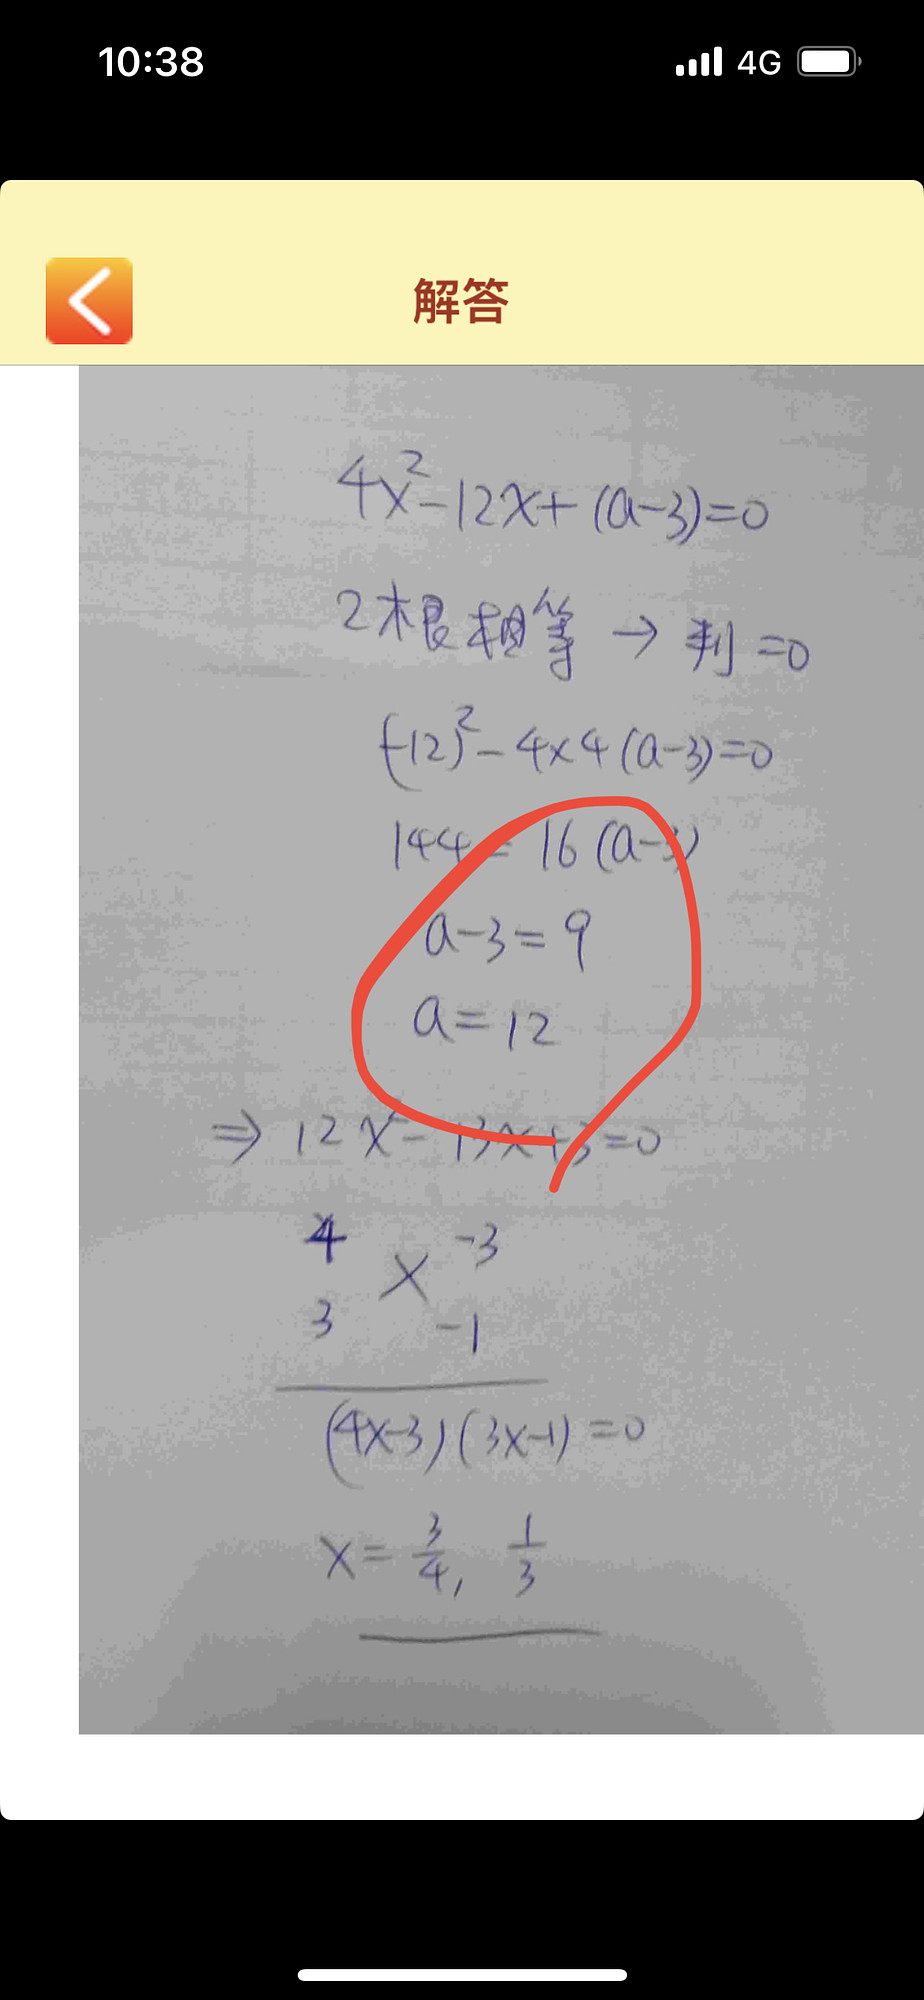 10:38
4G
解答
4x²-12x+(a-3)=0
2根相等 → 判=0
(-12)²-4x4(a-3)=0
144=16(a-3)
a-3=9
a=12
⇒ 12x²-13x+3=0
4 -3
x
3 -1
(4x-3)(3x-1)=0
x=3/4, 1/3